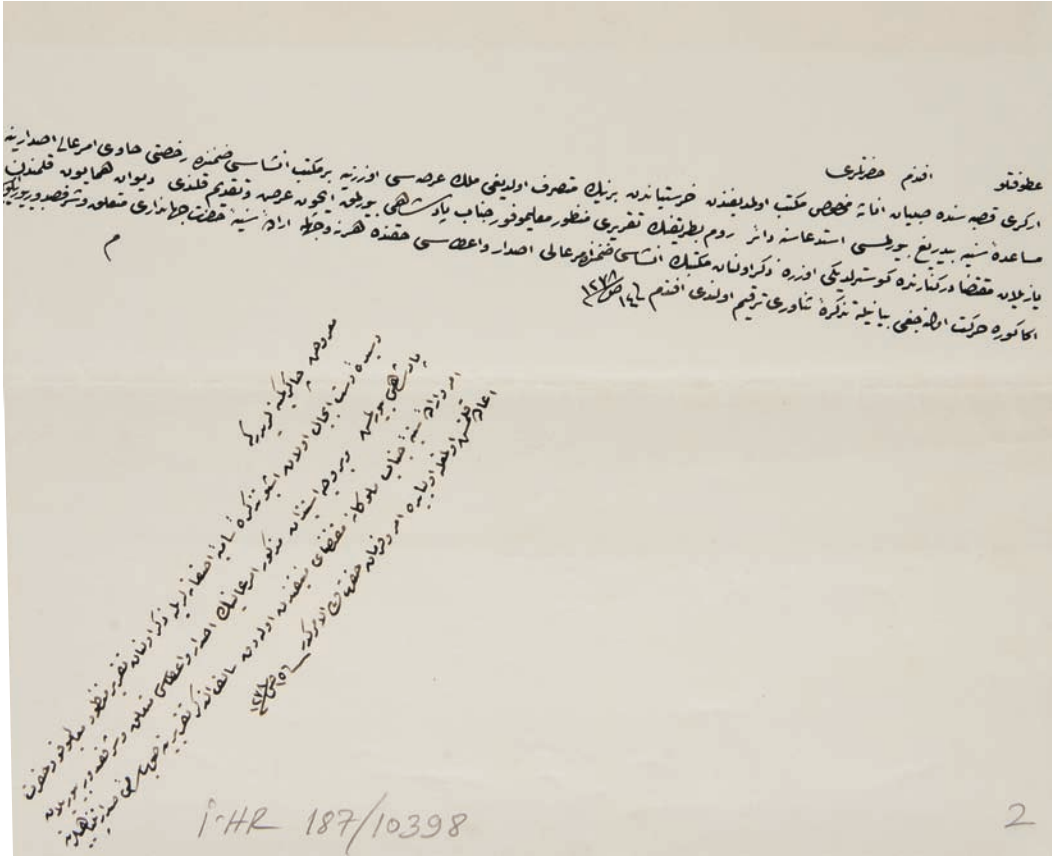 عطوفتلو افندم حضرتلری
اركری قصبه سنده صبیان اناثه مخصوص مكتب اولمدیغندن خرستیاندن برینك متصرف اولدیغی ملك عرصه سی اوزرینه برمكتب انشاسی ضمننده رخصتی حاوی امرعالی اصدارینه
مساعدۀ سنیه بیدریغ بیورلمسی استدعاسنه دائر روم بطریقنك تقریری منظور معالیموفور جناب پادشاهی بیورلمق ایچون عرض وتقدیم قلندی دیوان همایون قلمندن
یازیلان مقتضا دركنارنده كوسترلدیكی اوزره ذكراولنان مكتبك انشاسی ضمننده امرعالی اصدار واعطاسی حقنده هرنه وجهله ارادۀ سنیۀ حضرت جهانداری متعلق وشرفصدور بیوریلور
اكاكوره حركت اولنه جغی بیانیله تذكرۀ ثناوری ترقیم اولندی افندم ١٤ ص ١٢٧٨
م
معروض چاكر كمینه لریدركه
رسیدۀ دست ابجال اولان اشبو تذكرۀ سامیۀ آصفانه لریله ذكراولنان تقریر منظور معالیموفور حضرت
پادشاهی بیورلمش وبروجه استیذان مذكور امرعالینك اصدار واعطاسی متعلق وشرفصدور بیوریلان
امر وارادۀ سنیۀ جناب ملوكانه مقتضای منیفندن اولەرق سالف الذكر تقریر ینه صوب سامئ صدارتپناهیلرینه
اعاده قلنمش اولمغله اولبابده امر وفرمان حضرت ولی الامركدر ١٥ ص ١٢٧٨
İ-HR 187/10398
2